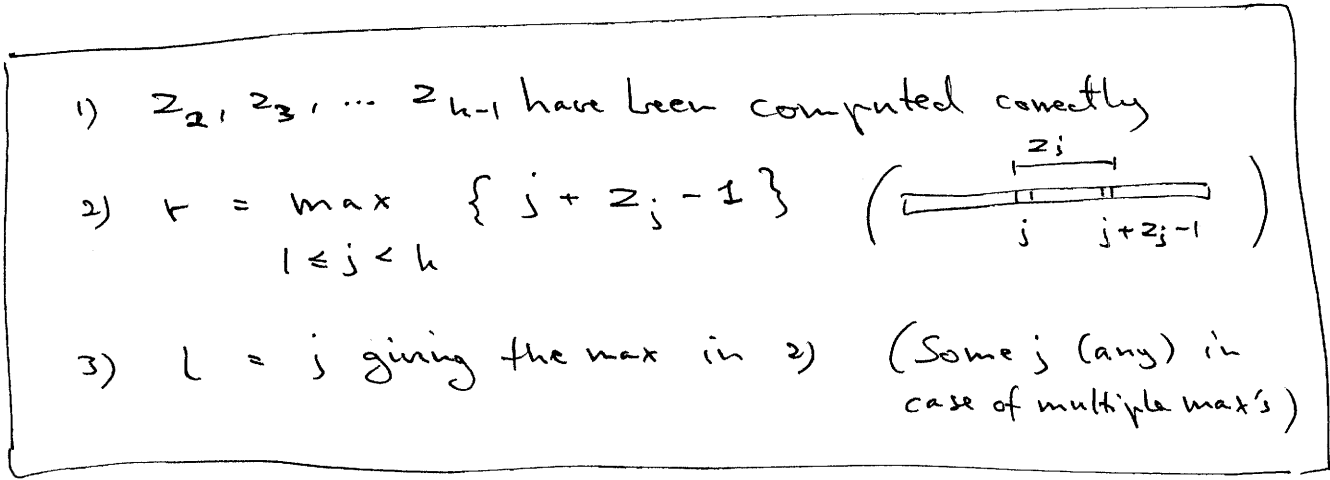 1) Z₂, Z₃, ... Z_{k-1} have been computed correctly
Zj
2) r = max { j + Zj - 1 } ( j j+Zj-1 )
1 ≤ j < k
3) l = j giving the max in 2) (Some j (any) in
case of multiple max's)